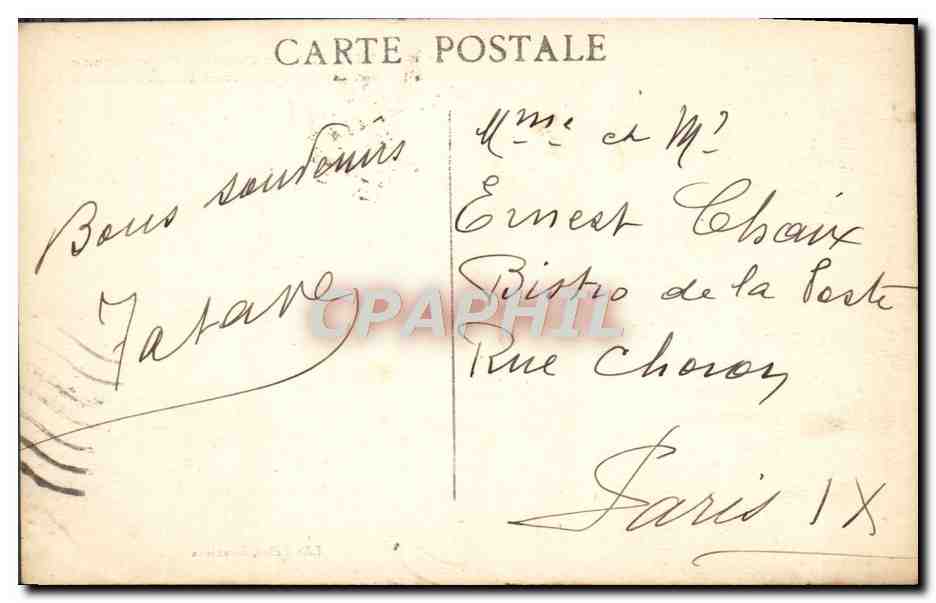 CARTE POSTALE
Bons souvenirs
Tatave
Mme et Mr
Ernest Chaix
Bistro de la Poste
Rue Choron
Paris IX
CPAPHIL